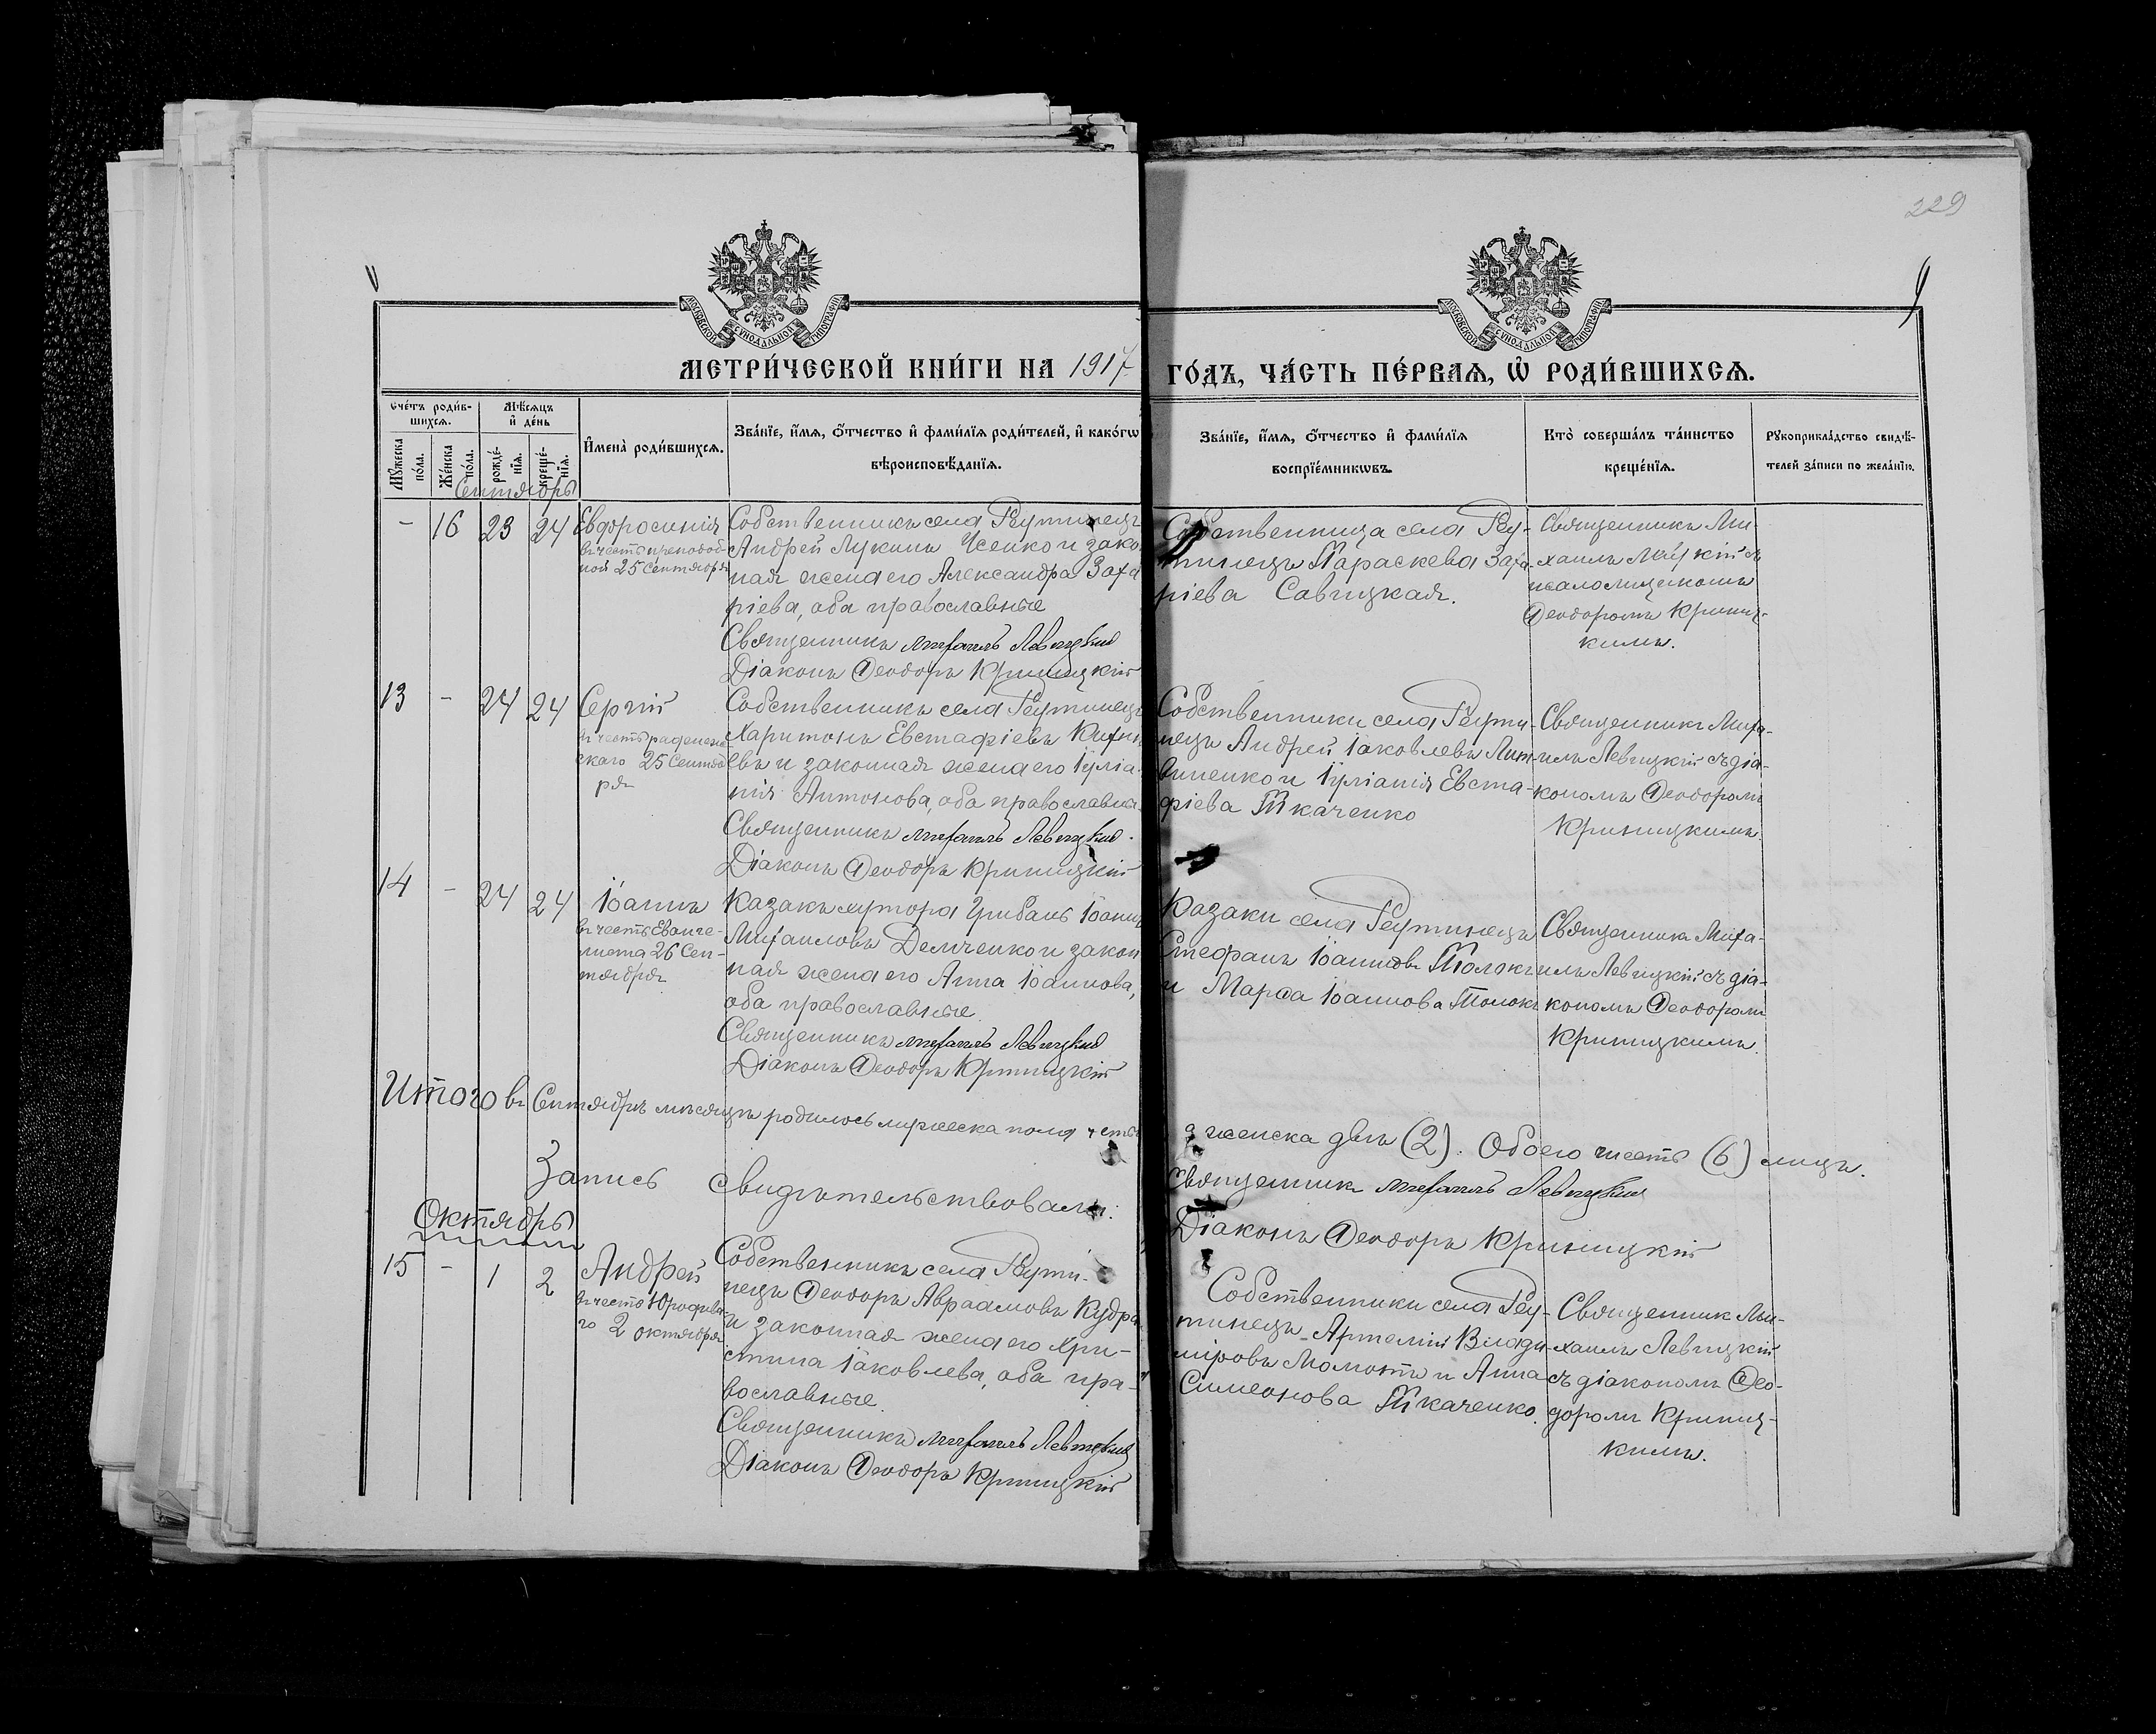 229
МОСКОВСКОЙ СѴНОДАЛЬНОЙ ТИПОГРАФІИ
МОСКОВСКОЙ СѴНОДАЛЬНОЙ ТИПОГРАФІИ
МЕТРИ́ЧЕСКОЙ КНИ́ГИ НА 1917
ГО́ДЪ, ЧА́СТЬ ПЕ́РВАѦ, Ѡ҆ РОДИ́ВШИХСѦ.
Сче́тъ роди́в-
шихсѧ.
Мꙋ́жеска
по́ла.
Же́нска
по́ла.
Мѣ́сѧцъ
и҆ де́нь
рожде́-
нїѧ.
креще́-
нїѧ.
И҆мена̀ роди́вшихсѧ.
Зва́нїе, и҆́мѧ, ѻ҆́тчество и҆ фами́лїѧ роди́телей, и҆ како́гѡ
вѣроисповѣ́данїѧ.
Зва́нїе, и҆́мѧ, ѻ҆́тчество и҆ фами́лїѧ
воспрїе́мникѡвъ.
Кто̀ соверша́лъ та́инство
креще́нїѧ.
Рꙋкоприкла́дство свидѣ́-
телей за́писи по жела́нїю.
Сентябрь
- 16 23 24
Евфросинія
въ честь преподоб-
ной 25 Сентября
Собственникъ села Реутинецъ
Андрей Лукинъ Усенко и зако
ная жена его Александра Заха
ріева, оба православные
Священникъ Михаилъ Левицкий
Діаконъ Ѳеодоръ Криницкій
Собственница села Реу-
тинецъ Параскева Заха-
ріева Савицкая.
Священникъ Ми-
хаилъ съ
псаломщикомъ
Ѳеодоромъ Криниц-
кимъ.
13 - 24 24
Сергій
въ честь Радонеж-
скаго 25 Сентяб
ря
Собственникъ села Реутинецъ
Харитонъ Евстафіевъ
евъ и законная жена его Іуліа-
нія Антонова, оба православна
Священникъ Михаилъ Левицкий.
Діаконъ Ѳеодоръ Криницкій
Собственники села Реути-
нецъ Андрей Іаковлевъ Лит-
виненко и Іуліанія Евста-
фіева Ткаченко
Священникъ Миха-
илъ Левицкій съ діа-
кономъ Ѳеодоромъ
Криницкимъ.
14 - 24 24
Іоаннъ
въ честь Еванге-
листа 26 Сен-
тября
Казакъ хутора Грибань Іоаннъ
Михаиловъ Демченко и закон
ная жена его Анна Іоаннова,
оба православные.
Священникъ Михаилъ Левицкий
Діаконъ Ѳеодоръ Криницкій
Казаки села Реутинецъ
Стефанъ Іоанновъ Толокъ
и Марѳа Іоаннова Толокъ
Священникъ Миха-
илъ Левицкій съ діа-
кономъ Ѳеодоромъ
Криницкимъ.
Итого въ Сентябрѣ мѣсяцѣ родилось мужеска пола четы
а женска двѣ (2). Обоего шесть (6) лицъ.
Запись свидѣтельствовали:
Священникъ Михаилъ Левицкий
Діаконъ Ѳеодоръ Криницкій
Октябрь
15 - 1 2
Андрей
въ честь Юродива-
го 2 октября
Собственникъ села Реути-
нецъ Ѳеодоръ Авраамовъ Кудра
и законная жена его Хри-
стина Іаковлева, оба пра-
вославные.
Священникъ Михаилъ Левицкий
Діаконъ Ѳеодоръ Криницкій
Собственники села Реу-
тинецъ Артемій Влади-
міровъ Момотъ и Анна
Симеонова Ткаченко.
Священник Ми-
хаилъ Левицкій
съ діакономъ Ѳео-
доромъ Криниц-
кимъ.